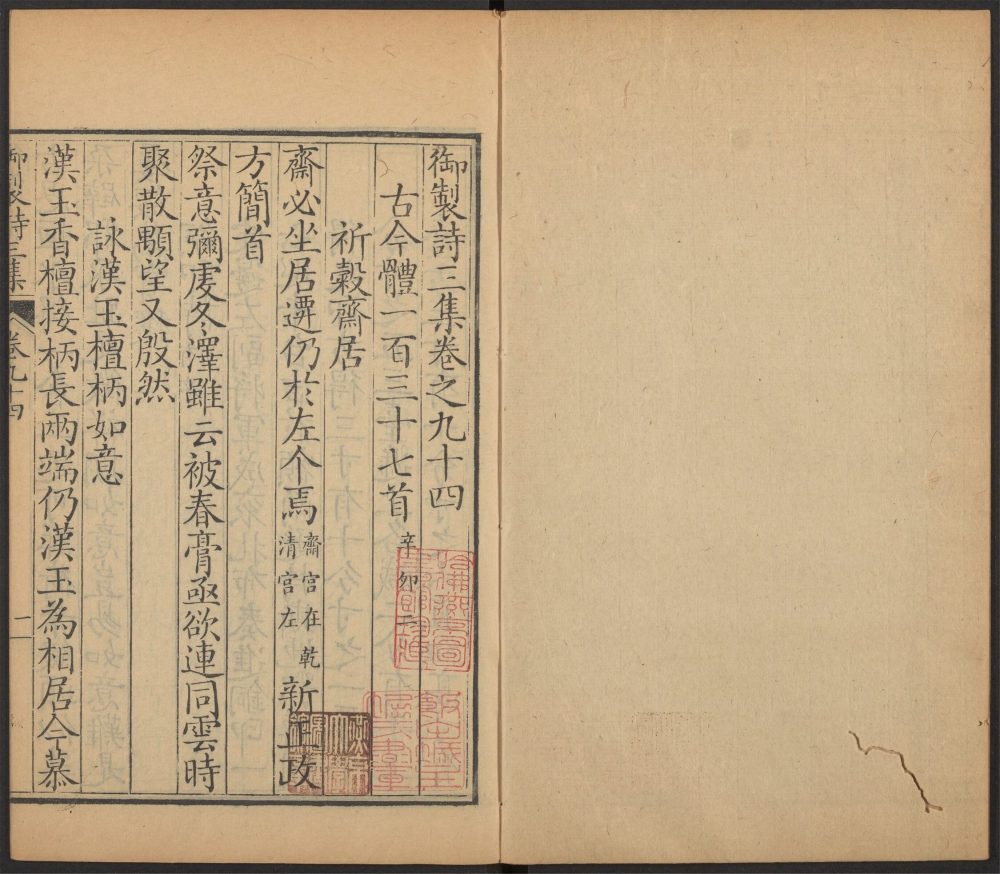 御製詩三集卷之九十四
古今體一百三十七首辛卯二
祈穀齋居
齋必坐居遷仍於左个焉齋宮在乾清宮左新正政
方簡首
祭意彌虔冬澤雖云被春膏亟欲連同雲時
聚散顒望又殷然
詠漢玉檀柄如意
漢玉香檀接柄長兩端仍漢玉為相居今慕
御製詩三集 卷九十四 一